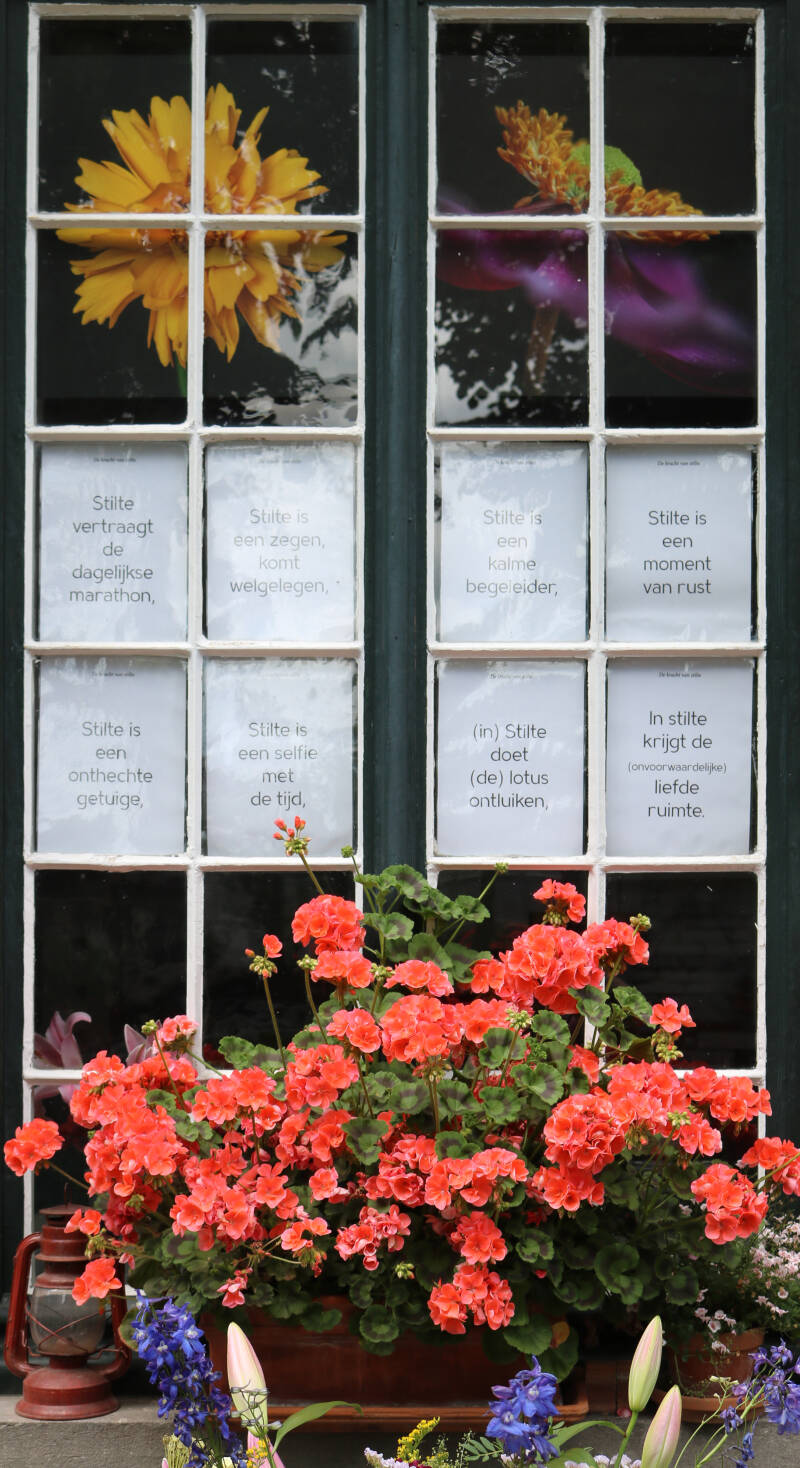 De kracht van stilte
Stilte
vertraagt
de
dagelijkse
marathon,
De kracht van stilte
Stilte is
een zegen,
komt
welgelegen,
De kracht van stilte
Stilte is
een
kalme
begeleider,
De kracht van stilte
Stilte is
een
moment
van rust
De kracht van stilte
Stilte is
een
onthechte
getuige,
De kracht van stilte
Stilte is
een selfie
met
de tijd,
De kracht van stilte
(in) Stilte
doet
(de) lotus
ontluiken,
De kracht van stilte
In stilte
krijgt de
(onvoorwaardelijke)
liefde
ruimte.